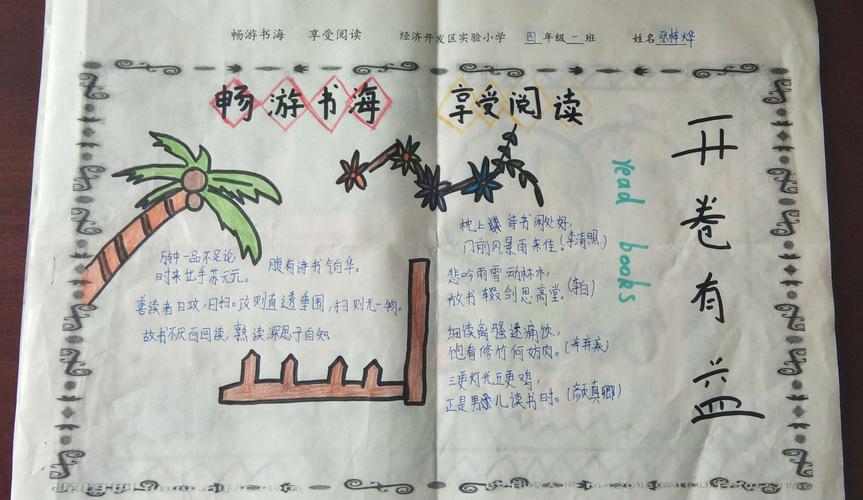 畅游书海 享受阅读 经济开发区实验小学 四 年级 一 班 姓名 张梓烨
畅游书海 享受阅读
开卷有益
read books
万钟一品不足论,
时来出手苏元元。
腹有诗书气自华。
善读者日攻、日扫。攻则直透重围,扫则无一物。
故书不厌百回读,熟读深思子自知
枕上 诗书闲处好,
门前风景雨来佳。(李清照)
悲吟雨雪动林木,
放书辍剑思高堂。(李白)
细读离骚还痛饮,
饱看修竹何妨肉。(辛弃疾)
三更灯光五更鸡,
正是男 儿读书时。(颜真卿)